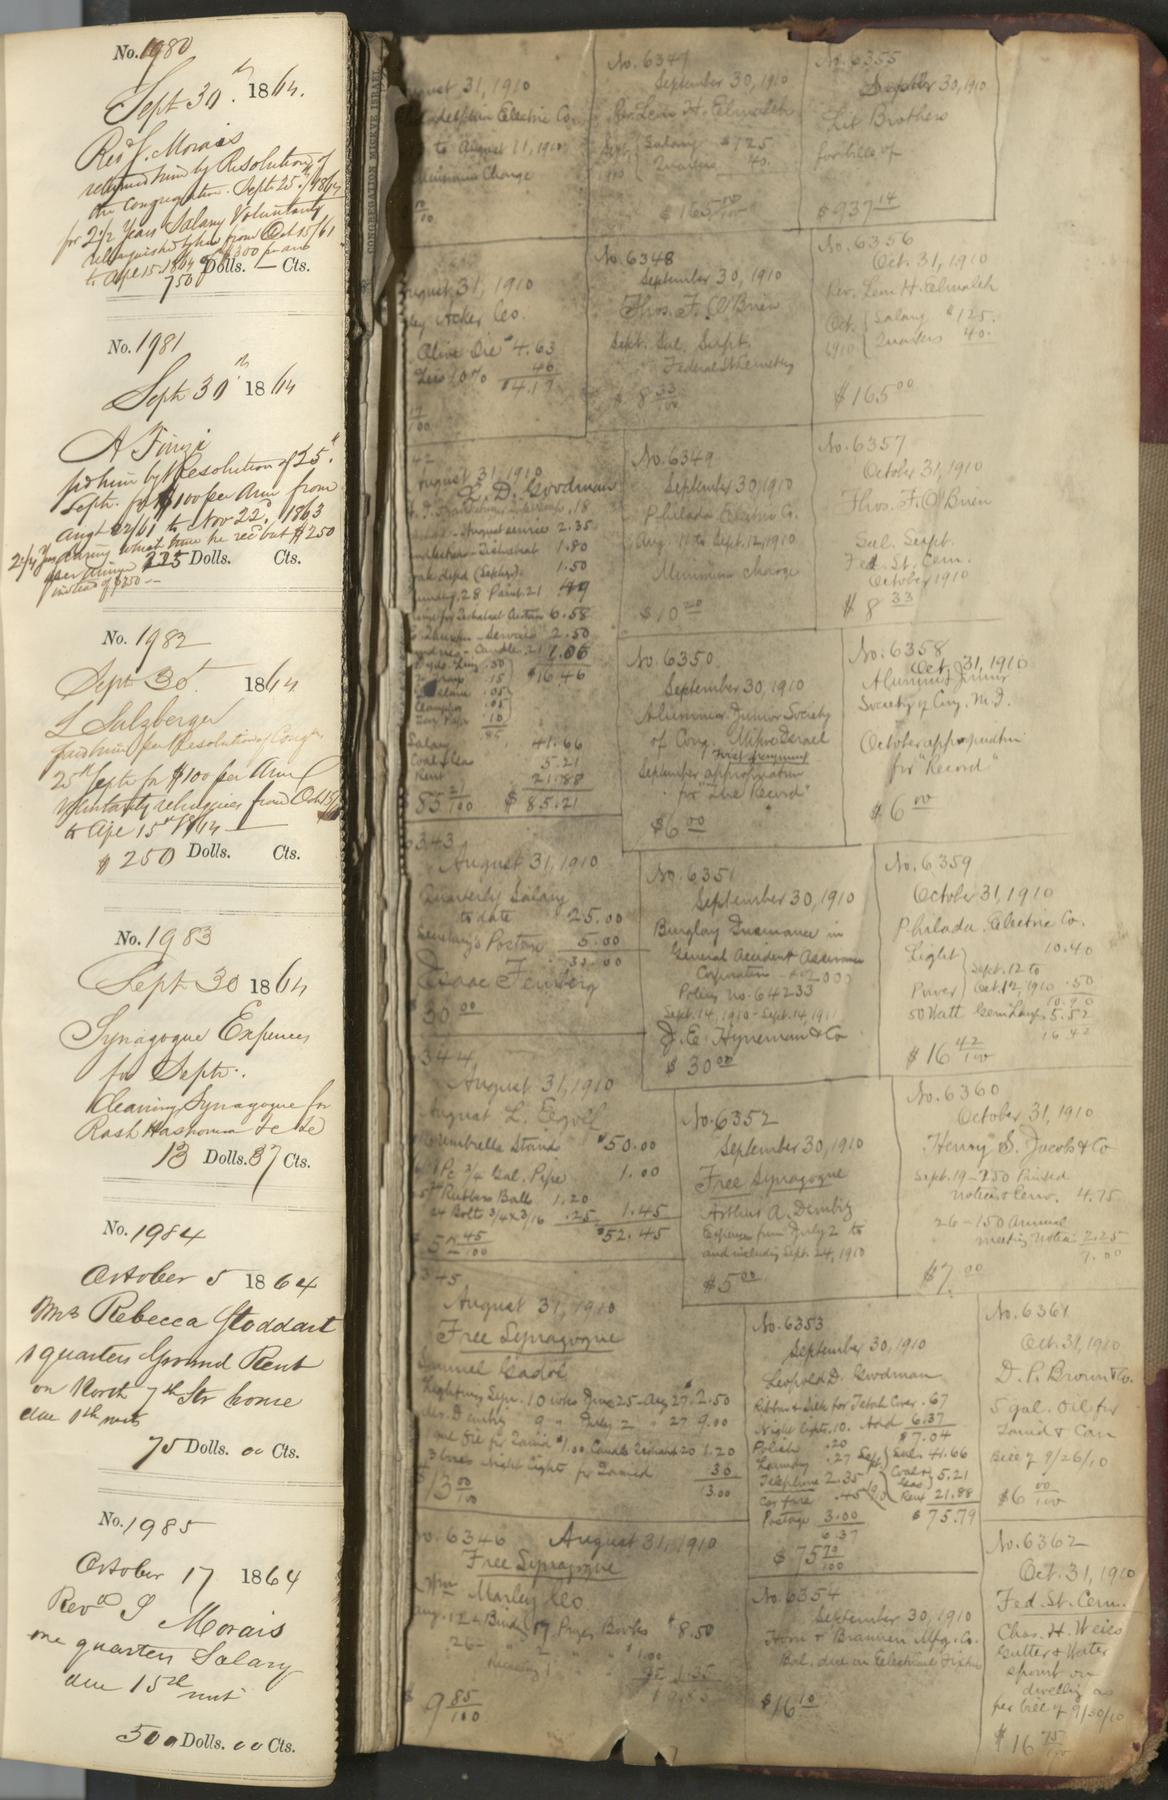 No. 1980
Sept 30th. 1864.
Revd S. Morais
returned him by Resolution of
the Congregation. Septr. 25th, 1864
for 2 1/2 Years Salary Voluntarily
relinquished by him from Oct 15/61
to Apl 15 1864 @ $300 per ann
750 Dolls. — Cts.
No. 1981
Sept 30th 1864
A Finzi
pd him by Resolution of 25th
Septr. for $100 per Ann from
Augt 22/61 to Nov 22d, 1863
2 1/4 Yrs during which time he recd but $250
per annum
instead of $350 —
225 Dolls. Cts.
No. 1982
Sept 30th. 1864
L Salzberger
paid him per Resolution of Congn
25th Septr for $100 per Ann
Voluntarily relinquished from Oct 15/61
to Apl 15th 1864 —
$250 Dolls. Cts.
No. 1983
Sept 30 1864
Synagogue Expenses
for Septr.
Cleaning Synagogue for
Rosh Hashonna &c &c
13 Dolls. 37 Cts.
No. 1984
October 5 1864
Mrs Rebecca Stoddart
1 quarters Ground Rent
on North 7th Str house
due 1th inst
75 Dolls. 00 Cts.
No. 1985
October 17 1864
Revd S Morais
one quarters Salary
due 15th inst
500 Dolls. 00 Cts.
CONGREGATION MICKVE ISRAEL
August 31, 1910
Philadelphia Electric Co.
to August 11, 1910
Minimum Charge
August 31, 1910
Acker Co.
Olive Oil $4.63
Less 10% 46
$4.17
17/100
42
August 31, 1910
L. D. Goodman
August service 2.35
1.80
1.50
6.58
Service 2.50
Candle 1.06
$16.46
Salary 41.66
Coal & Gas 5.21
Rent 21.88
85 21/100 $85.21
343
August 31, 1910
Quarterly Salary
to date 25.00
Secretary's Postage 5.00
30.00
Isaac Feinberg
30 00
344
August 31, 1910
August L.
Umbrella Stand $50.00
1 Pc 3/4 Gal. Pipe 1.00
Rubber Ball 1.20
24 Bolts 3/4 x 3/16 .25 1.45
$52.45
52 45/100
345
August 31, 1910
Free Synagogue
Samuel Gadol
Lighting Syn. 10 wks June 25 - Aug 27 $2.50
Mrs. Dembitz 9 " July 2 " 27 9.00
gal Oil for Tamid $1.00 Candles 20 1.20
3 boxes Night Lights for Tamid 30
13.00
$13 00/100
No. 6346 August 31, 1910
Free Synagogue
Wm Manley Co
Aug. 12 - Bind 17 Prayer Books $8.50
1.35
9.85
9 85/100
No. 6347
September 30, 1910
Rev. Leon H. Elmaleh
Sept. 1910 Salary $125
Quarters 40.
$165 00/100
No. 6348
September 30, 1910
Thos. F. O'Brien
Sept. Sal. Supt.
Federal St. Cemetery
$8 33/100
No. 6349
September 30, 1910
Philada Electric Co.
Aug. 11 to Sept. 12, 1910
Minimum charge
$10 20
No. 6350
September 30, 1910
Alumni Junior Society
of Cong. Mikve Israel
First payment
September appropriation
for "The Record"
$6 00
No. 6351
September 30, 1910
Burglary Insurance in
General Accident Assurance
Corporation - $2000
Policy no. 64233
Sept. 14, 1910 - Sept. 14, 1911
J. E. Hyneman & Co
$30 00
No. 6352
September 30, 1910
Free Synagogue
Arthur A. Dembitz
Expenses from July 2 to
and including Sept. 24, 1910
$5 00
No. 6353
September 30, 1910
Leopold D. Goodman
Ribbon & Silk for Tebah Cover .67
Night Lights. 10. Add 6.37
$7.04
Polish .20
Laundry .27
Telephone 2.35
Car fare .45
Postage 3.00
6.37
Sept. 1910 Sal. 41.66
Coal & Gas 5.21
Rent 21.88
$75.79
$75 79/100
No. 6354
September 30, 1910
Horn & Brannen Mfg. Co.
Bal. due on Electrical Fixtures
$16 10
No. 6355
September 30, 1910
Lit Brothers
for bills of
$937 14
No. 6356
Oct. 31, 1910
Rev. Leon H. Elmaleh
Oct. 1910 Salary $125.
Quarters 40.
$165 00
No. 6357
October 31, 1910
Thos. F. O'Brien
Sal. Supt.
Fed. St. Cem.
October 1910
$8 33
No. 6358
Oct. 31, 1910
Alumni Junior
Society of Cong. M.I.
October appropriation
for "Record"
$6 00
No. 6359
October 31, 1910
Philada. Electric Co.
Light 10.40
Sept. 12 to
Power Oct. 12, 1910 .50
10.90
50 Watt Gem Lamps 5.52
16.42
$16 42/100
No. 6360
October 31, 1910
Henry S. Jacobs & Co
Sept. 19 - 250 Printed
Notices & Env. 4.75
26 - 150 Annual
meeting Notices 2.25
7.00
$7. 00
No. 6361
Oct. 31, 1910
D. P. Brown & Co.
5 gal. Oil for
Tamid & Can
Bill of 9/26/10
$6 00/100
No. 6362
Oct. 31, 1910
Fed. St. Cem.
Chas. H. Weiss
Gutter & Water
spout on
dwelling as
per bill of 9/30/10
$16 75/100